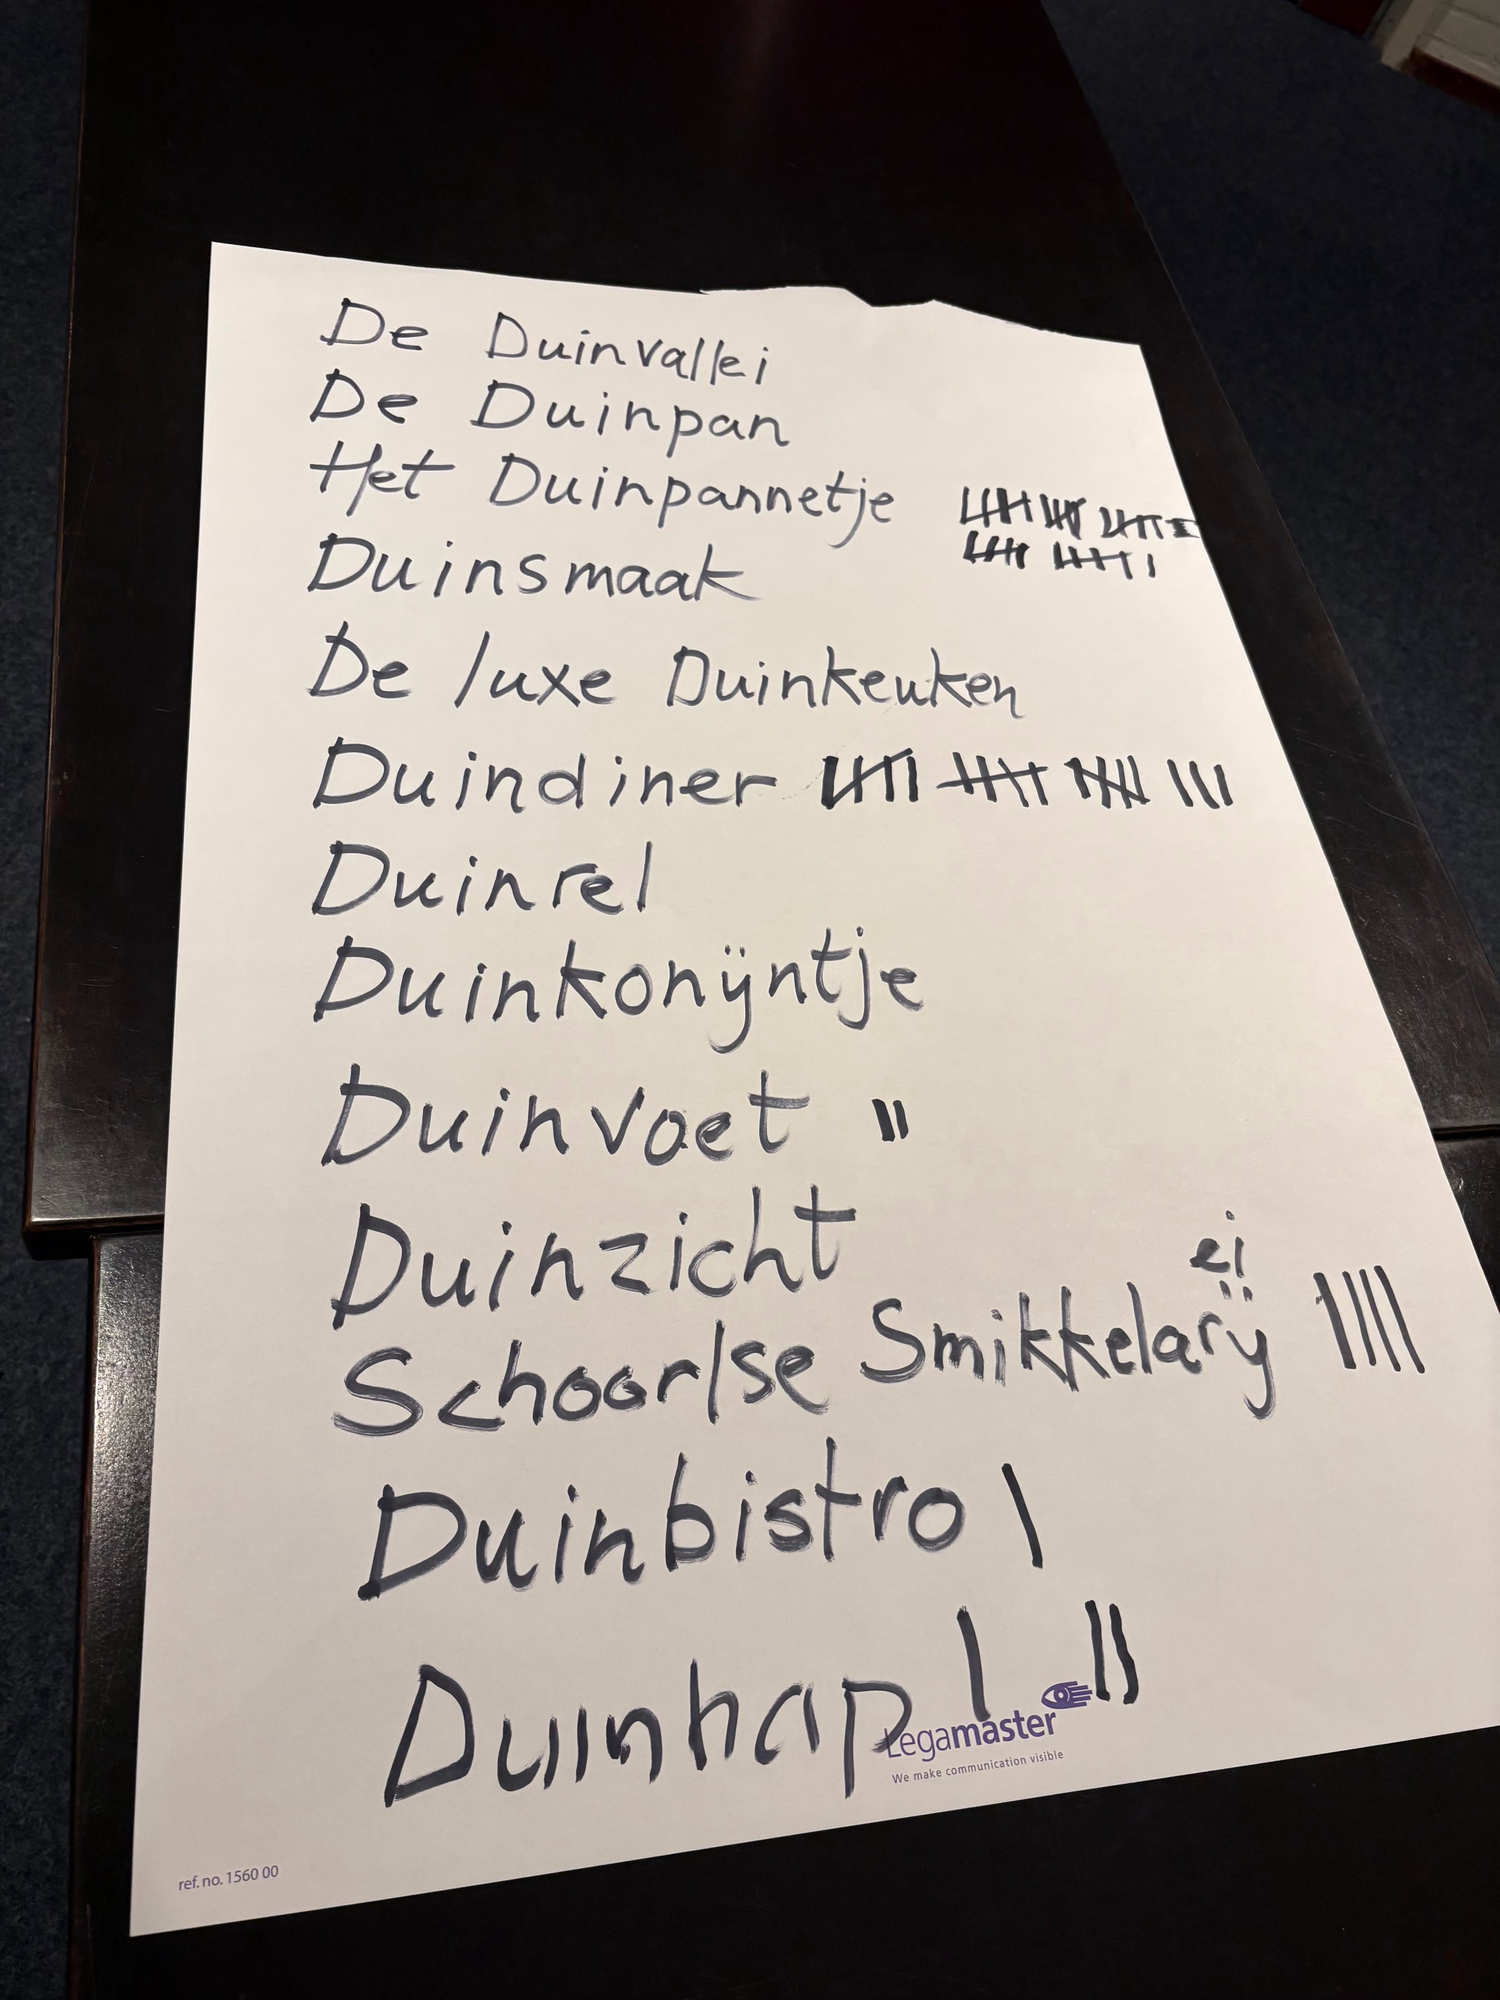 De Duinvallei
De Duinpan
Het Duinpannetje
Duinsmaak
De luxe Duinkeuken
Duindiner
Duinrel
Duinkonijntje
Duinvoet
Duinzicht
ei
Schoorlse Smikkelarij
Duinbistro
Duinhap
Legamaster
We make communication visible
ref. no. 1560 00